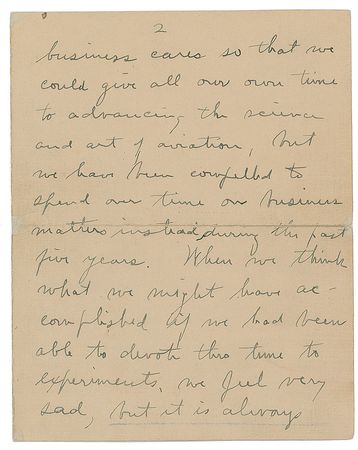 2
business cares so that we
could give all our own time
to advancing the science
and art of aviation, but
we have been compelled to
spend our time on business
matters instead, during the past
five years. When we think
what we might have ac-
complished if we had been
able to devote this time to
experiments, we feel very
sad, but it is always